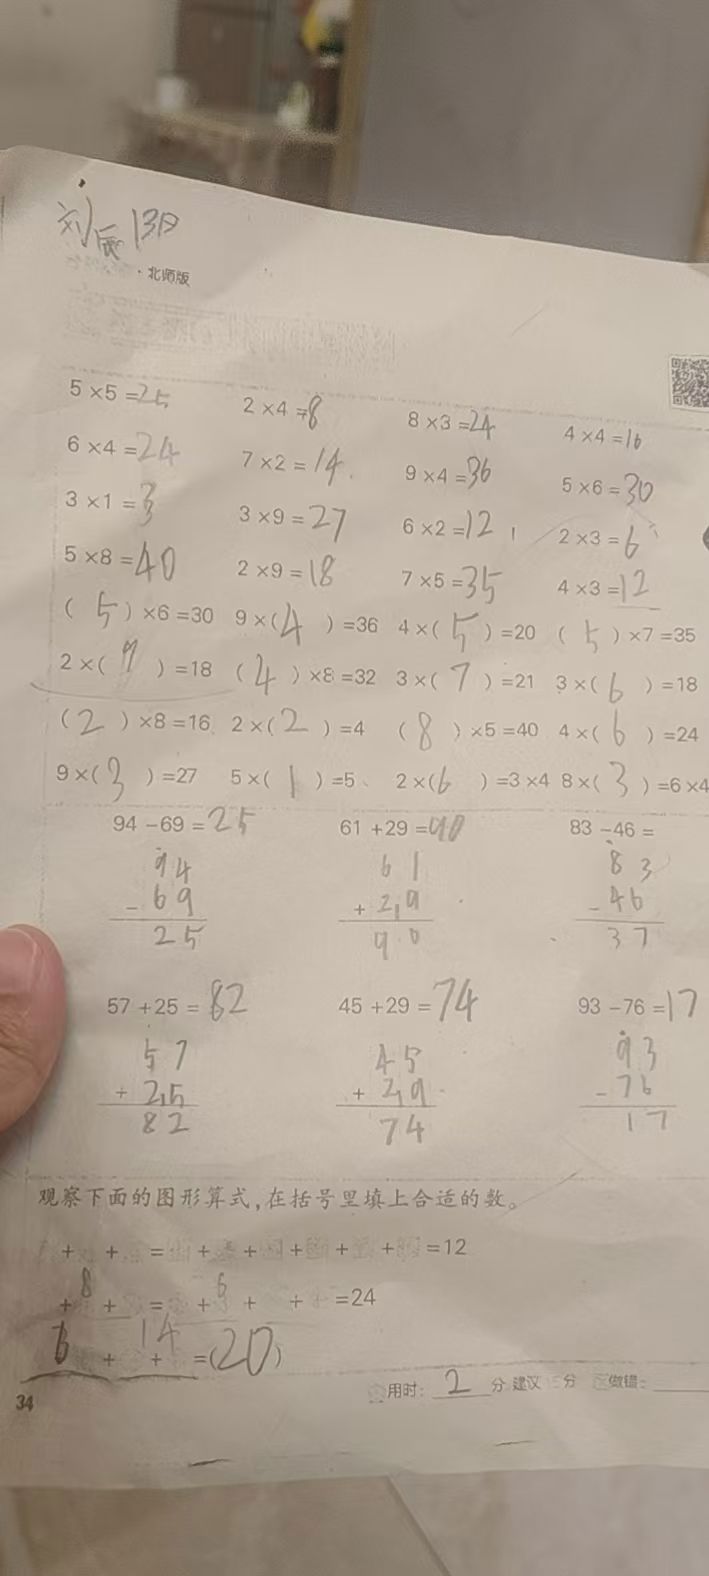 刘辰 13日
·北师版
5×5=25 2×4=8 8×3=24 4×4=16
6×4=24 7×2=14 9×4=36 5×6=30
3×1=3 3×9=27 6×2=12 2×3=6
5×8=40 2×9=18 7×5=35 4×3=12
(5)×6=30 9×(4)=36 4×(5)=20 (5)×7=35
2×(9)=18 (4)×8=32 3×(7)=21 3×(6)=18
(2)×8=16 2×(2)=4 (8)×5=40 4×(6)=24
9×(3)=27 5×(1)=5 2×(6)=3×4 8×(3)=6×4
94-69=25 61+29=90 83-46=
94 61 83
-69 +219 -46
25 90 37
57+25=82 45+29=74 93-76=17
57 45 93
+215 +219 -76
82 74 17
观察下面的图形算式,在括号里填上合适的数。
+ + = + + + + + =12
8 6
+ + = + + + =24
6 14
+ + =(20)
用时: 2 分 建议 分 做错:
34